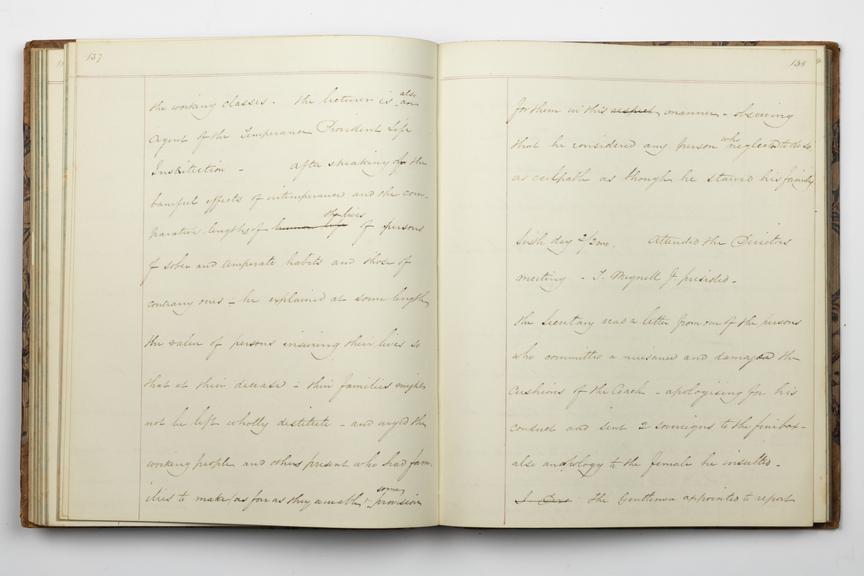 137
the working classes. The lecturer is also an
Agent of the Temperance Provident Life
Institution - After speaking of the
baneful effects of intemperance and the com-
parative lengths of human life the lives of persons
of sober and temperate habits and those of
contrary ones - he explained at some length
the value of persons insuring their lives so
that at their decease - their families might
not be left wholly destitute - and urged the
working people and others present who had fam-
ilies to make (as far as they were able) some provision
138
for them in this respect manner - observing
that he considered any person who neglected to do so
as culpable as though he starved his family
Sixth day 2/3mo. Attended the Directors
meeting - T. Meynell Jr. presided -
the Secretary read a letter from one of the persons
who committed a nuisance and damaged the
Cushions of the Coach - apologising for his
conduct and sent 2 sovereigns to the fine box -
also an apology to the female he insulted -
The Gentlemen appointed to report